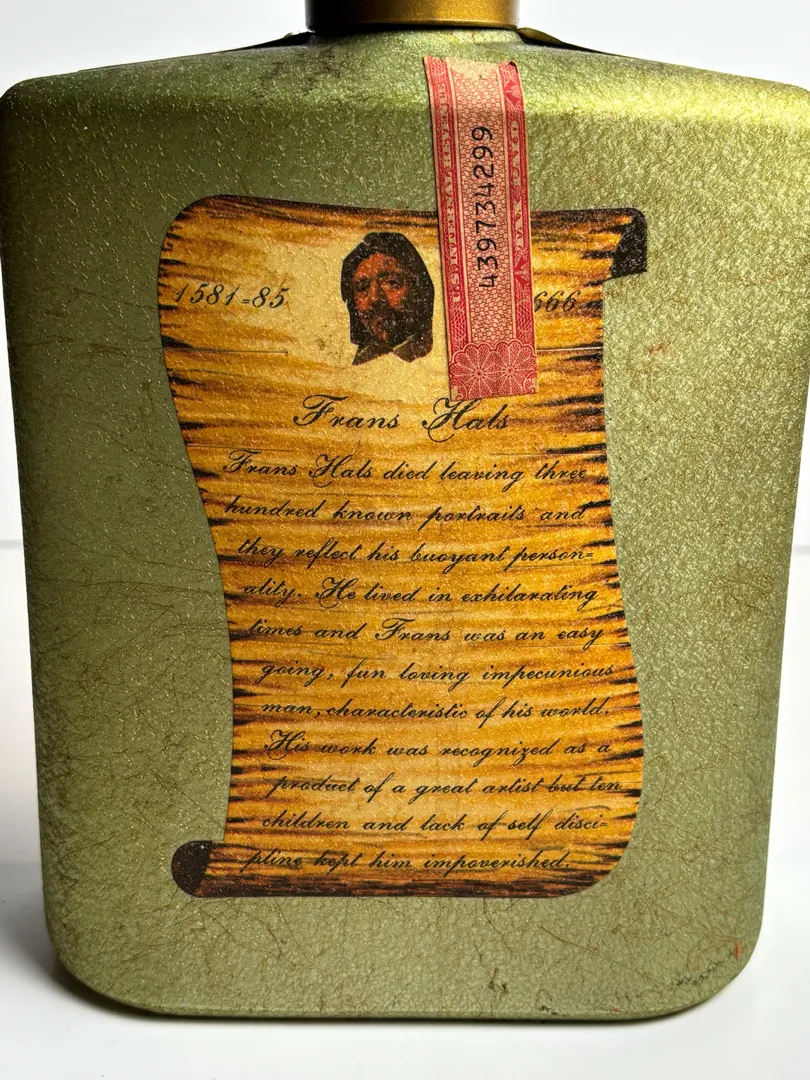 439734299
1581-85
666
Frans Hals
Frans Hals died leaving three
hundred known portraits and
they reflect his buoyant person=
ality. He lived in exhilarating
times and Frans was an easy
going, fun loving impecunious
man, characteristic of his world.
His work was recognized as a
product of a great artist but ten
children and lack of self disci=
pline kept him impoverished.